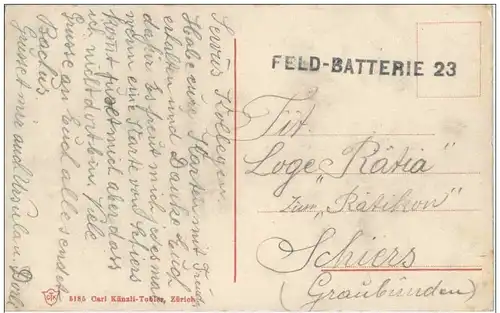 Servus Kollegen.
Habe eure Karten mit Freude
erhalten und Danke Euch
dafür. Es freut mich jedesmal
wenn eine Karte von Schiers
komt für mich aber dass
ich nicht dort bin. Viele
Grüsse an Euch alle sendet
Bachus.
Grüsset mir auch Ursula u. Dorli
FELD-BATTERIE 23
Tit.
Loge „Rätia"
zum „Rätikon"
Schiers
(Graubünden)
5185 Carl Künzli-Tobler, Zürich